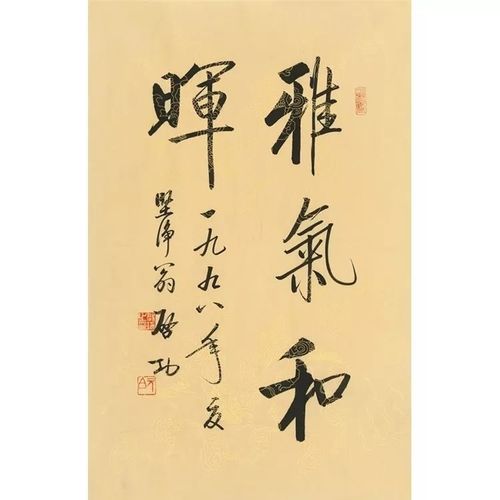 雅氣和
暉
一九九八年夏
堅淨翁启功